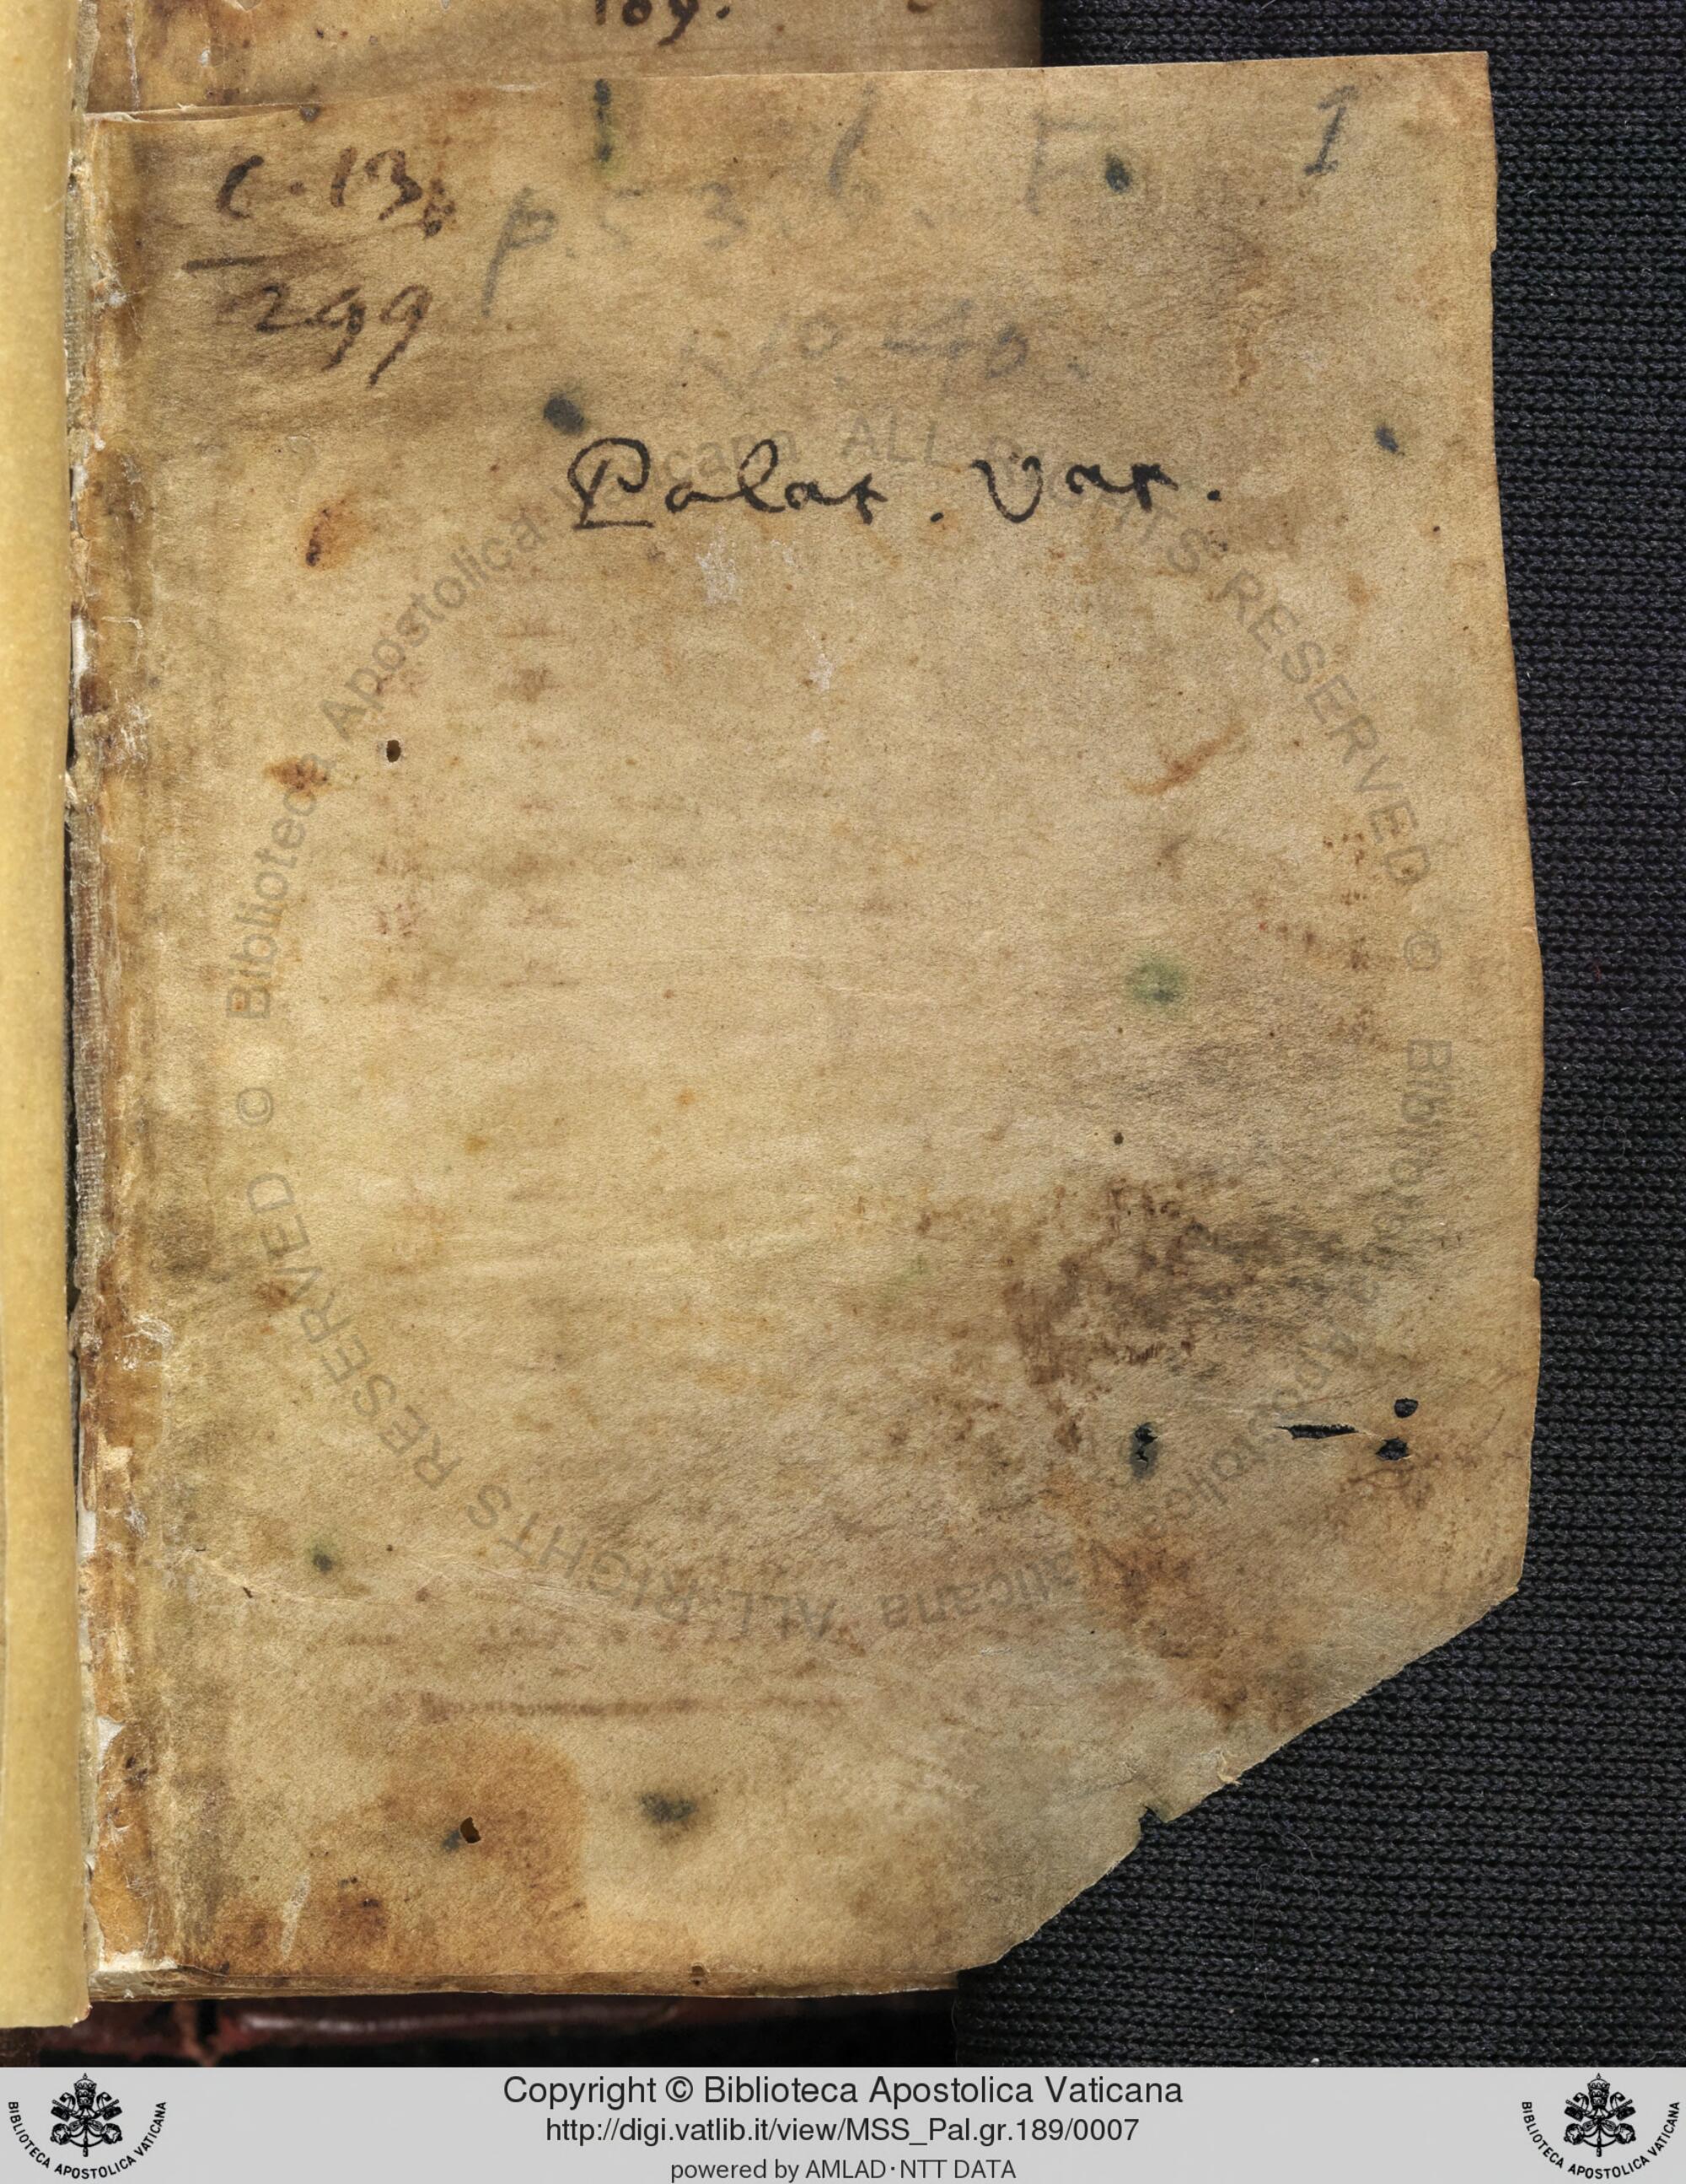 189.
C. 13.
299
Palat. Vat.
I
© Biblioteca Apostolica Vaticana ALL RIGHTS RESERVED © Biblioteca Apostolica Vaticana ALL RIGHTS RESERVED
Copyright © Biblioteca Apostolica Vaticana
http://digi.vatlib.it/view/MSS_Pal.gr.189/0007
powered by AMLAD·NTT DATA
BIBLIOTECA APOSTOLICA VATICANA
BIBLIOTECA APOSTOLICA VATICANA